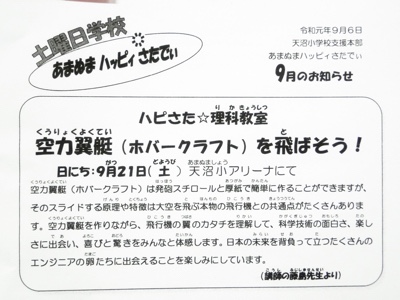 土曜日学校
あまぬま ハッピィ さたでぃ
令和元年９月６日
天沼小学校支援本部
あまぬまハッピィさたでぃ
９月のお知らせ
ハピさた☆理科教室
りか きょうしつ
くうりょくよくてい
空力翼艇（ホバークラフト）を飛ばそう！
と
がつ にち どようび あまぬましょう
日にち:９月21日( 土 ) 天沼小アリーナにて
空力翼艇（ホバークラフト）は発砲スチロールと厚紙で簡単に作ることができますが、
そのスライドする原理や特徴は大空を飛ぶ本物の飛行機との共通点がたくさんありま
す。空力翼艇を作りながら、飛行機の翼のカタチを理解して、科学技術の面白さ、楽し
さに出会い、喜びと驚きをみんなと体感します。日本の未来を背負って立つたくさんの
エンジニアの卵たちに出会えることを楽しみにしています。
（講師の藤島先生より）